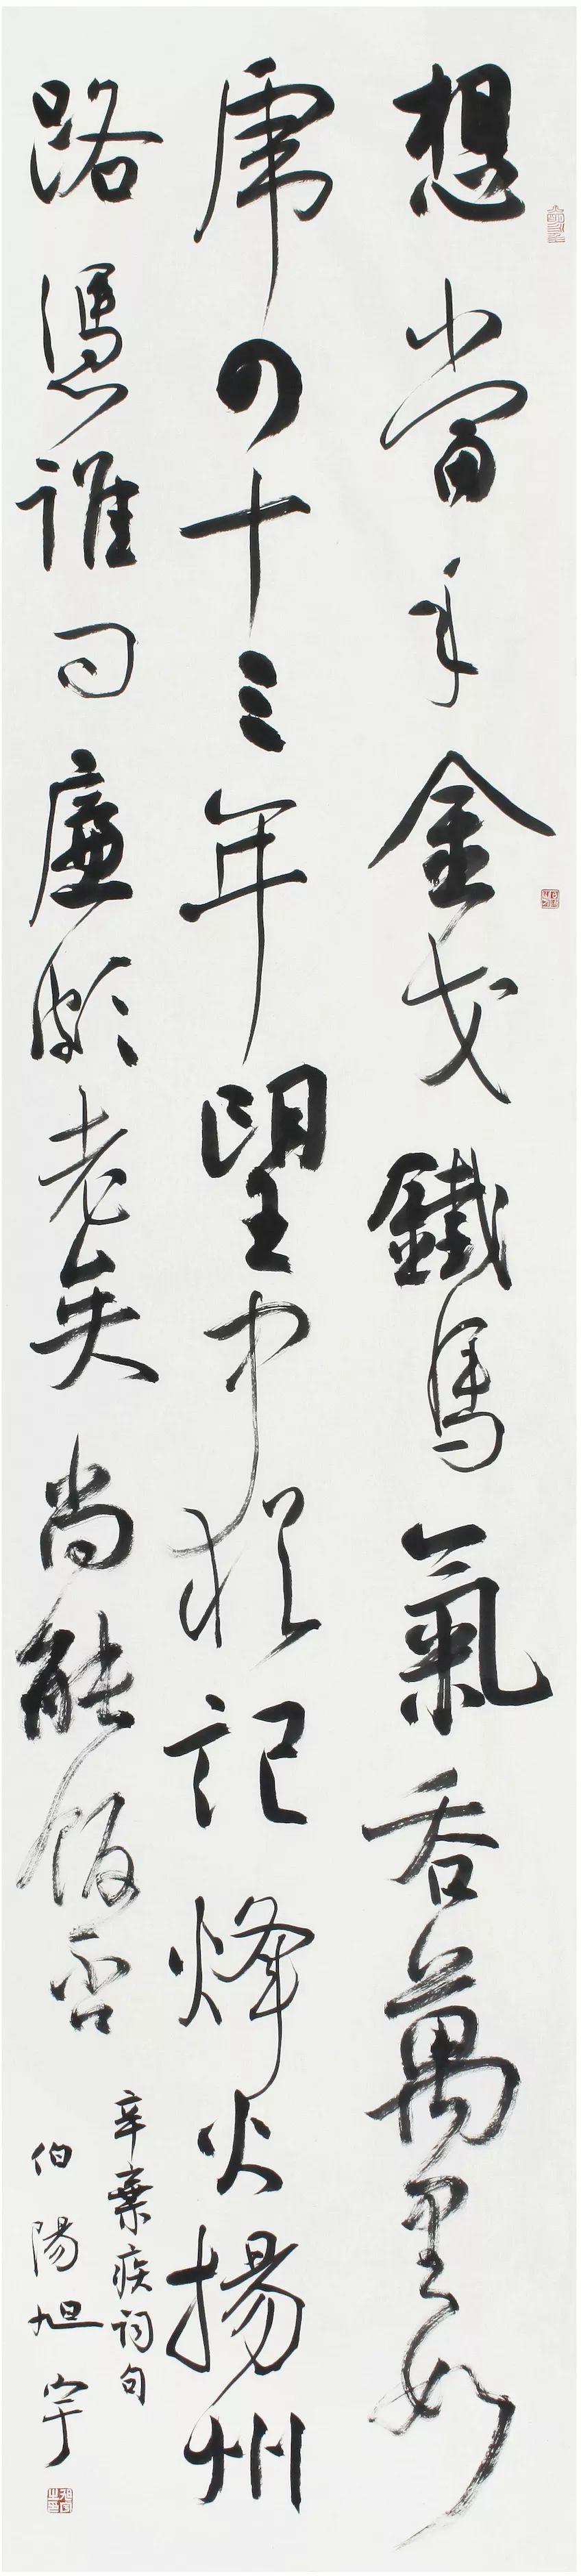 想當年金戈鐵馬氣吞萬里如
虎四十三年望中猶記烽火揚州
路憑誰問廉頗老矣尚能飯否
辛棄疾詞句
伯陽旭宇